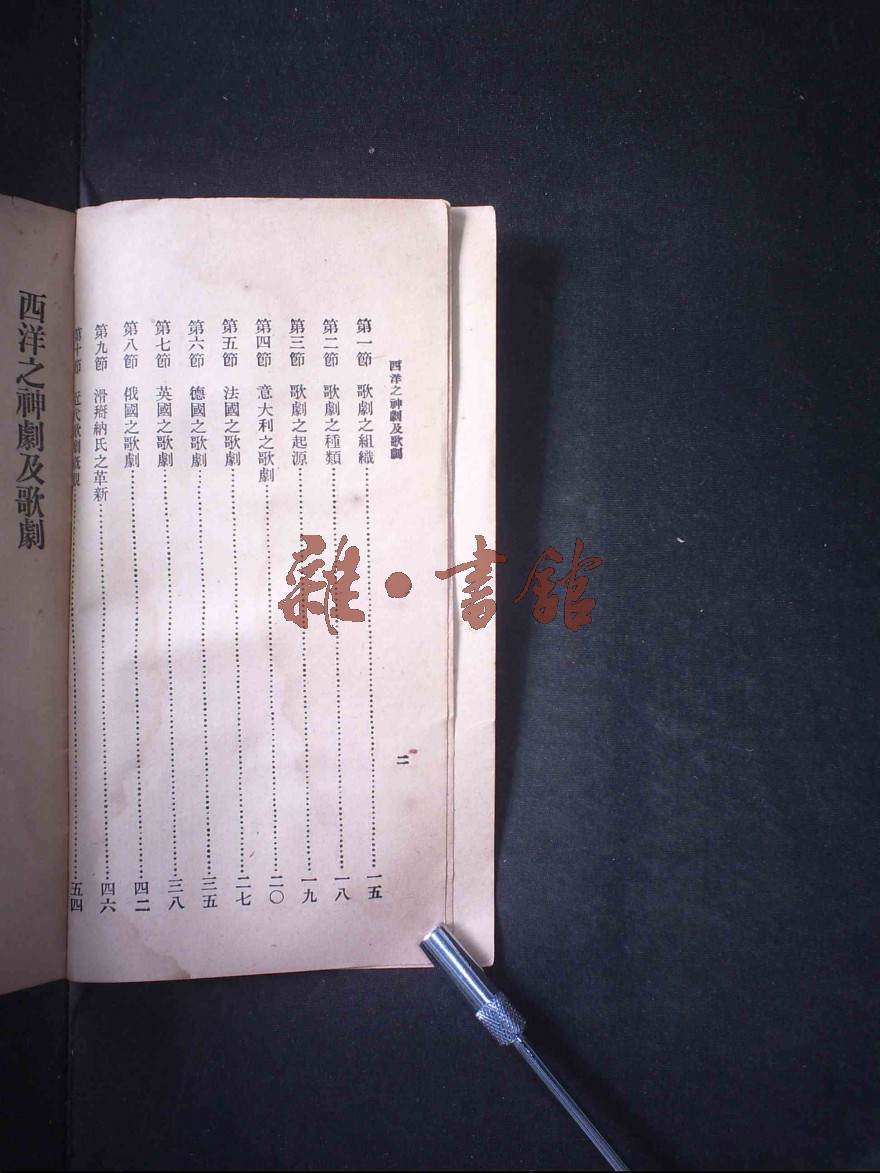 西洋之神劇及歌劇
二
第一節 歌劇之組織 一五
第二節 歌劇之種類 一八
第三節 歌劇之起源 一九
第四節 意大利之歌劇 二〇
第五節 法國之歌劇 二七
第六節 德國之歌劇 三五
第七節 英國之歌劇 三八
第八節 俄國之歌劇 四二
第九節 滑搿納氏之革新 四六
第十節 近代歌劇概觀 五四
西洋之神劇及歌劇
雜·書館